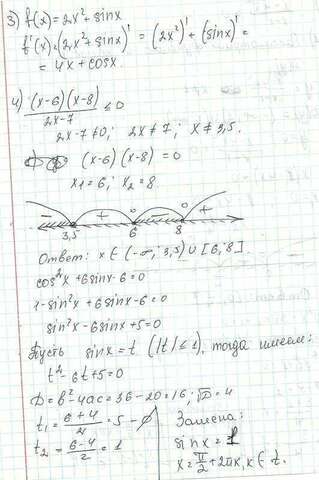 3) f(x)=2x²+sinx
f'(x)=(2x²+sinx)' = (2x²)' + (sinx)' =
= 4x + cosx
4) (x-6)(x-8)/2x-7 ≤0
2x-7≠0; 2x≠7; x≠3,5.
(x-6)(x-8)=0
x₁=6; x₂=8.
- + - +
3,5 6 8
Ответ: x∈(-∞;3,5)∪[6;8]
cos²x+6sinx-6=0
1-sin²x+6sinx-6=0
sin²x-6sinx+5=0
Пусть sinx=t (|t|≤1), тогда имеем:
t²-6t+5=0
D=b²-4ac=36-20=16; √D=4
t₁=6+4/2=5-∅
t₂=6-4/2=1
Замена:
sinx=1
x=π/2+2πk, k∈Z.